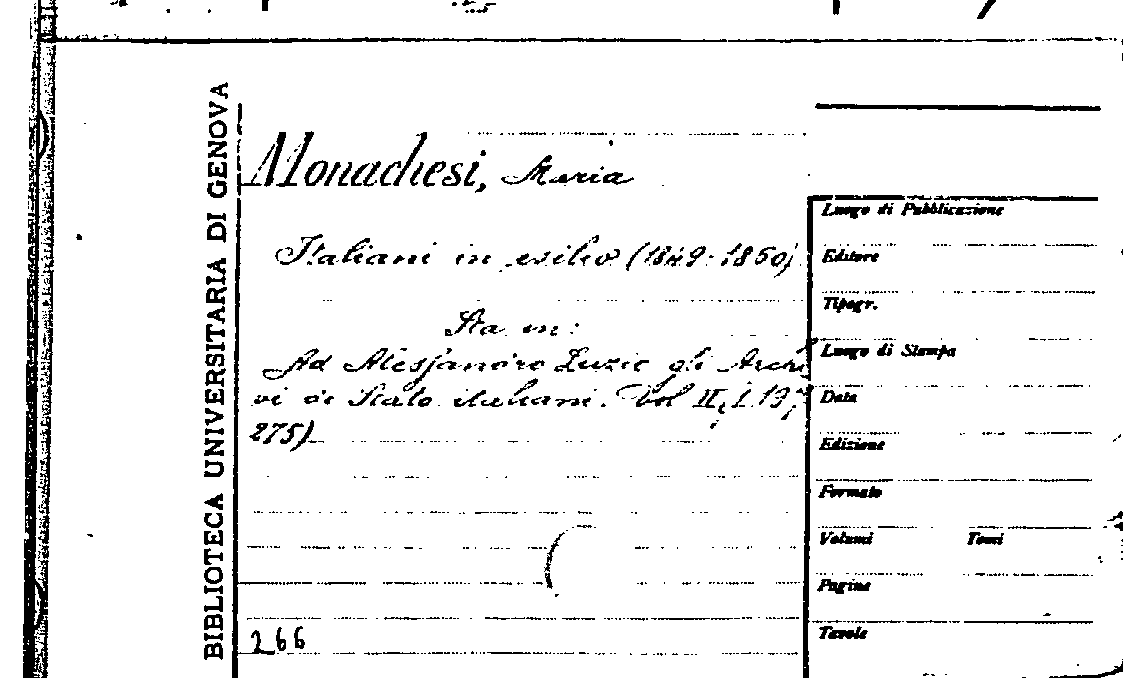 BIBLIOTECA UNIVERSITARIA DI GENOVA
Monachesi, Maria
Italiani in esilio (1849-1850)
Sta in:
Ad Alessandro Luzio gli Archi
vi di Stato italiani. Vol II,
275)
266
Luogo di Pubblicazione
Editore
Tipogr.
Luogo di Stampa
Data
Edizione
Formato
Volumi Tomi
Pagine
Tavole